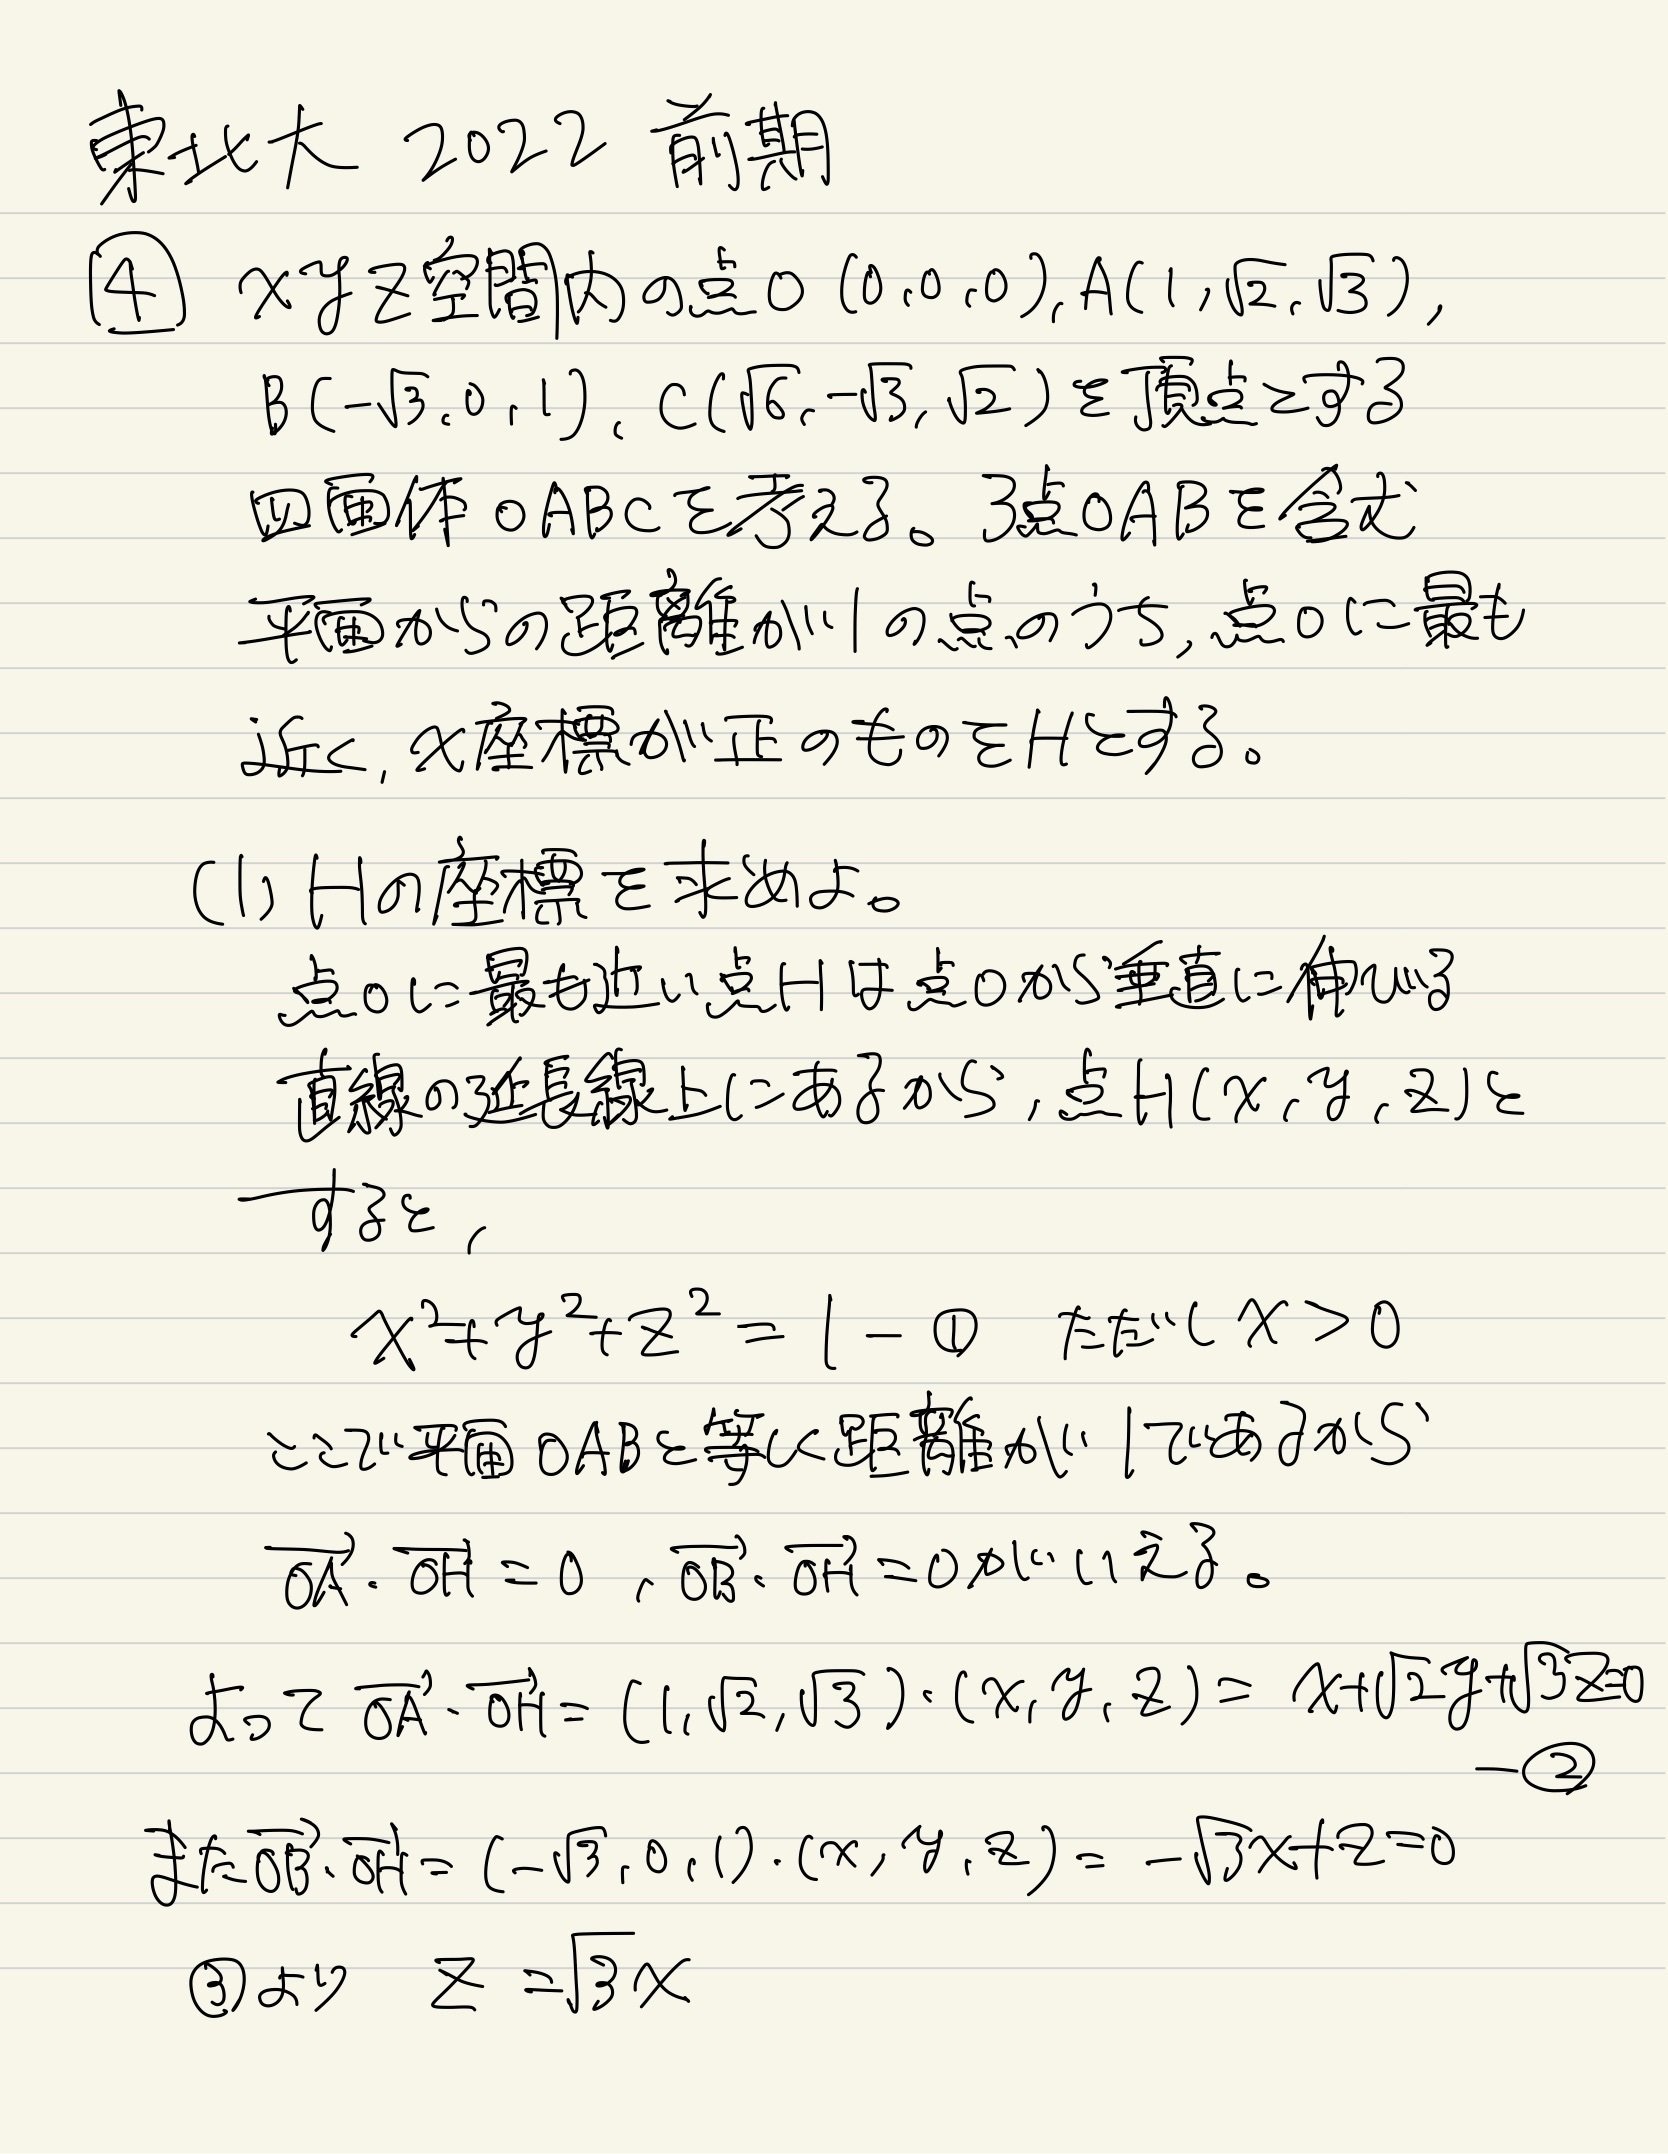 東北大 2022 前期
④ xyz空間内の点O(0,0,0), A(1,√2,√3),
B(-√3,0,1), C(√6,-√3,√2)を頂点とする
四面体OABCを考える。3点OABを含む
平面からの距離が1の点のうち,点Oに最も
近く,x座標が正のものをHとする。
(1) Hの座標を求めよ。
点Oに最も近い点Hは点Oから垂直に伸びる
直線の延長線上にあるから,点H(x,y,z)と
すると,
x²+y²+z²=1 -① ただしx>0
ここで平面OABと等しく距離が1であるから
→OA・→OH=0 , →OB・→OH=0がいえる。
よって →OA・→OH=(1,√2,√3)・(x,y,z)= x+√2y+√3z=0
-②
また→OB・→OH=(-√3,0,1)・(x,y,z)= -√3x+z=0
③より z=√3x